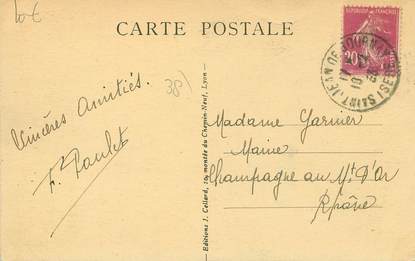 10€
CARTE POSTALE
RÉPUBLIQUE FRANÇAISE
20
SAINT JEAN DE BOURNAY (ISÈRE)
381
Sincères Amitiés.
F. Paulet
Madame Garnier
Mairie
Champagne au Mt d'Or
Rhône
Editions J. Cellard, 10, montée du Chemin-Neuf, Lyon